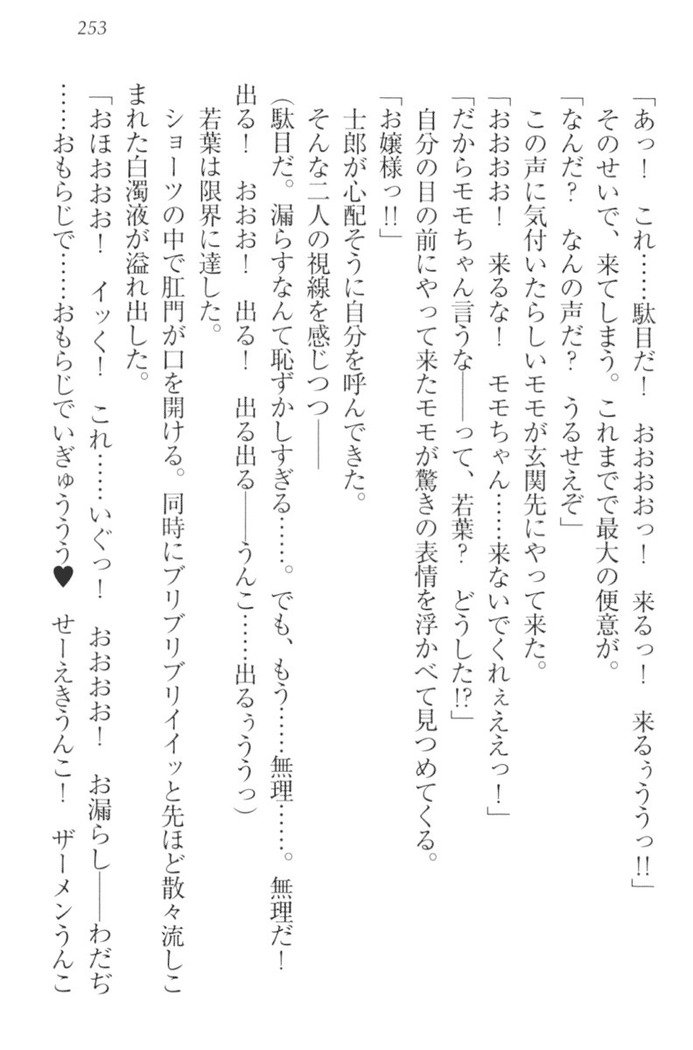 253
「あっ！　これ……駄目だ！　おおおおっ！　来るっ！　来るぅううっ!!」
そのせいで、来てしまう。これまでで最大の便意が。
「なんだ？　なんの声だ？　うるせえぞ」
この声に気付いたらしいモモが玄関先にやって来た。
「おおおお！　来るな！　モモちゃん……来ないでくれぇええっ！」
「だからモモちゃん言うな――って、若葉？　どうした!?」
自分の目の前にやって来たモモが驚きの表情を浮かべて見つめてくる。
「お嬢様っ!!」
士郎が心配そうに自分を呼んできた。
そんな二人の視線を感じつつ――
（駄目だ。漏らすなんて恥ずかしすぎる……。でも、もう……無理……。無理だ！
出る！　おおお！　出る！　出る出る――うんこ……出るぅううっ）
若葉は限界に達した。
ショーツの中で肛門が口を開ける。同時にブリブリブリイイッと先ほど散々流しこ
まれた白濁液が溢れ出した。
「おほおおお！　イッく！　これ……いぐっ！　おおおお！　お漏らし――わだぢ
……おもらじで……おもらじでいぎゅううう♥　せーえきうんこ！　ザーメンうんこ